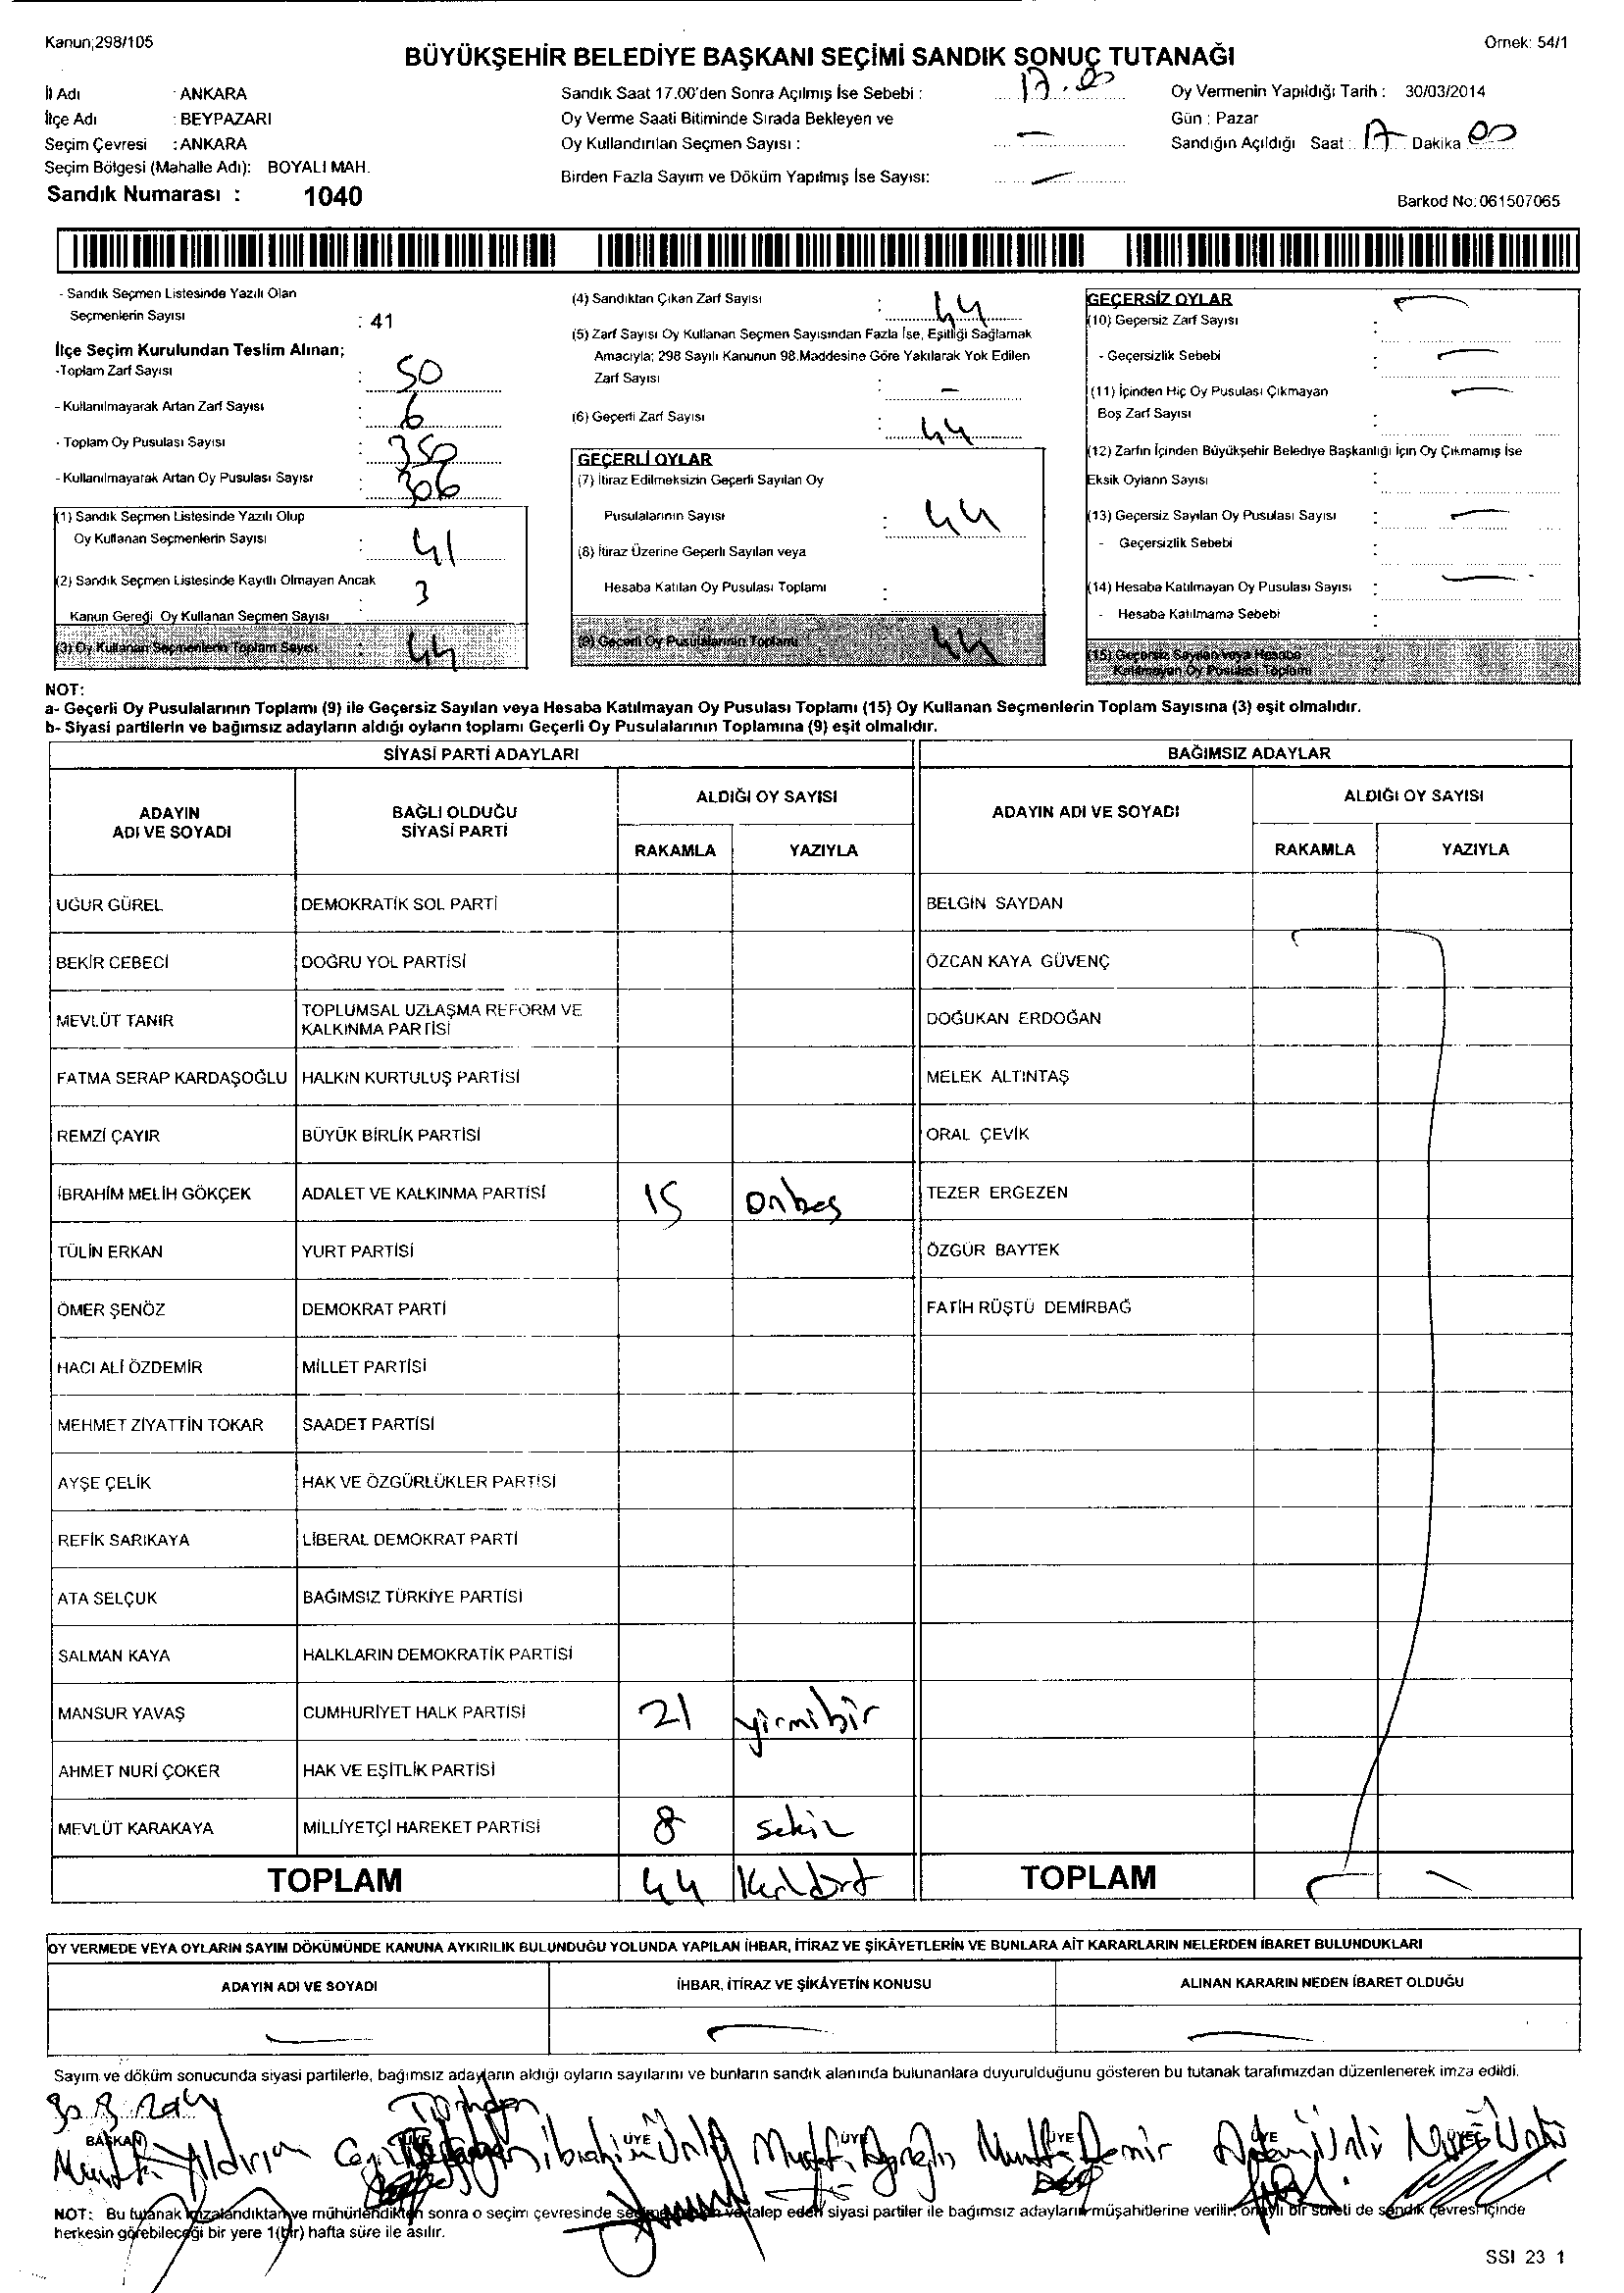 Kanun;298/105
Örnek: 54/1
BÜYÜKŞEHİR BELEDİYE BAŞKANI SEÇİMİ SANDIK SONUÇ TUTANAĞI
İl Adı : ANKARA
İlçe Adı : BEYPAZARI
Seçim Çevresi : ANKARA
Seçim Bölgesi (Mahalle Adı): BOYALI MAH.
Sandık Numarası : 1040
Sandık Saat 17.00'den Sonra Açılmış İse Sebebi : 17.00
Oy Verme Saati Bitiminde Sırada Bekleyen ve
Oy Kullandırılan Seçmen Sayısı : —
Birden Fazla Sayım ve Döküm Yapılmış İse Sayısı: —
Oy Vermenin Yapıldığı Tarih : 30/03/2014
Gün : Pazar
Sandığın Açıldığı Saat : 17 Dakika 00
Barkod No: 061507065
- Sandık Seçmen Listesinde Yazılı Olan
Seçmenlerin Sayısı : 41
İlçe Seçim Kurulundan Teslim Alınan;
-Toplam Zarf Sayısı : 50
- Kullanılmayarak Artan Zarf Sayısı : 6
- Toplam Oy Pusulası Sayısı : 350
- Kullanılmayarak Artan Oy Pusulası Sayısı : 306
(1) Sandık Seçmen Listesinde Yazılı Olup
Oy Kullanan Seçmenlerin Sayısı : 41
(2) Sandık Seçmen Listesinde Kayıtlı Olmayan Ancak
Kanun Gereği Oy Kullanan Seçmen Sayısı : 3
(3) Oy Kullanan Seçmenlerin Toplam Sayısı : 44
(4) Sandıktan Çıkan Zarf Sayısı : 44
(5) Zarf Sayısı Oy Kullanan Seçmen Sayısından Fazla İse, Eşitliği Sağlamak
Amacıyla; 298 Sayılı Kanunun 98.Maddesine Göre Yakılarak Yok Edilen
Zarf Sayısı : -
(6) Geçerli Zarf Sayısı : 44
GEÇERLİ OYLAR
(7) İtiraz Edilmeksizin Geçerli Sayılan Oy
Pusulalarının Sayısı : 44
(8) İtiraz Üzerine Geçerli Sayılan veya
Hesaba Katılan Oy Pusulası Toplamı :
(9) Geçerli Oy Pusulalarının Toplamı 44
GEÇERSİZ OYLAR
(10) Geçersiz Zarf Sayısı : —
- Geçersizlik Sebebi : —
(11) İçinden Hiç Oy Pusulası Çıkmayan —
Boş Zarf Sayısı :
(12) Zarfın İçinden Büyükşehir Belediye Başkanlığı İçin Oy Çıkmamış İse
Eksik Oyların Sayısı :
(13) Geçersiz Sayılan Oy Pusulası Sayısı : —
- Geçersizlik Sebebi :
(14) Hesaba Katılmayan Oy Pusulası Sayısı : —
- Hesaba Katılmama Sebebi :
(15) Geçersiz Sayılan veya Hesaba
Katılmayan Oy Pusulası Toplamı
NOT:
a- Geçerli Oy Pusulalarının Toplamı (9) ile Geçersiz Sayılan veya Hesaba Katılmayan Oy Pusulası Toplamı (15) Oy Kullanan Seçmenlerin Toplam Sayısına (3) eşit olmalıdır.
b- Siyasi partilerin ve bağımsız adayların aldığı oyların toplamı Geçerli Oy Pusulalarının Toplamına (9) eşit olmalıdır.
SİYASİ PARTİ ADAYLARI BAĞIMSIZ ADAYLAR
ADAYIN ADI VE SOYADI BAĞLI OLDUĞU SİYASİ PARTİ ALDIĞI OY SAYISI ADAYIN ADI VE SOYADI ALDIĞI OY SAYISI
RAKAMLA YAZIYLA RAKAMLA YAZIYLA
UĞUR GÜREL DEMOKRATİK SOL PARTİ BELGİN SAYDAN
BEKİR CEBECİ DOĞRU YOL PARTİSİ ÖZCAN KAYA GÜVENÇ
MEVLÜT TANIR TOPLUMSAL UZLAŞMA REFORM VE KALKINMA PARTİSİ DOĞUKAN ERDOĞAN
FATMA SERAP KARDAŞOĞLU HALKIN KURTULUŞ PARTİSİ MELEK ALTINTAŞ
REMZİ ÇAYIR BÜYÜK BİRLİK PARTİSİ ORAL ÇEVİK
İBRAHİM MELİH GÖKÇEK ADALET VE KALKINMA PARTİSİ 15 onbeş TEZER ERGEZEN
TÜLİN ERKAN YURT PARTİSİ ÖZGÜR BAYTEK
ÖMER ŞENÖZ DEMOKRAT PARTİ FATİH RÜŞTÜ DEMİRBAĞ
HACI ALİ ÖZDEMİR MİLLET PARTİSİ
MEHMET ZİYATTİN TOKAR SAADET PARTİSİ
AYŞE ÇELİK HAK VE ÖZGÜRLÜKLER PARTİSİ
REFİK SARIKAYA LİBERAL DEMOKRAT PARTİ
ATA SELÇUK BAĞIMSIZ TÜRKİYE PARTİSİ
SALMAN KAYA HALKLARIN DEMOKRATİK PARTİSİ
MANSUR YAVAŞ CUMHURİYET HALK PARTİSİ 21 yirmibir
AHMET NURİ ÇOKER HAK VE EŞİTLİK PARTİSİ
MEVLÜT KARAKAYA MİLLİYETÇİ HAREKET PARTİSİ 8 sekiz
TOPLAM 44 TOPLAM — —
OY VERMEDE VEYA OYLARIN SAYIM DÖKÜMÜNDE KANUNA AYKIRILIK BULUNDUĞU YOLUNDA YAPILAN İHBAR, İTİRAZ VE ŞİKÂYETLERİN VE BUNLARA AİT KARARLARIN NELERDEN İBARET BULUNDUKLARI
ADAYIN ADI VE SOYADI İHBAR, İTİRAZ VE ŞİKÂYETİN KONUSU ALINAN KARARIN NEDEN İBARET OLDUĞU
— — —
Sayım ve döküm sonucunda siyasi partilerle, bağımsız adayların aldığı oyların sayılarını ve bunların sandık alanında bulunanlara duyurulduğunu gösteren bu tutanak tarafımızdan düzenlenerek imza edildi.
30.3.2014
BAŞKAN ÜYE ÜYE ÜYE ÜYE ÜYE ÜYE
Yıldırım İbrahim Ünlü Demir Adem Ünlü Ünlü
NOT: Bu tutanak imzalandıktan ve mühürlendikten sonra o seçim çevresinde talep eden siyasi partiler ile bağımsız adayların müşahitlerine verilir, onaylı bir sureti de sandık çevresi içinde
herkesin görebileceği bir yere 1(bir) hafta süre ile asılır.
SSI 23 1